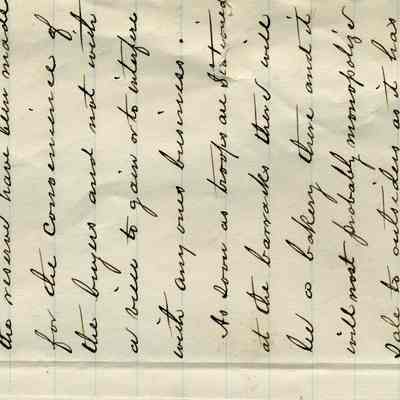 the reserve have been made
for the convenience of
the buyers and not with
a view to gain or to interfere
with any ones business.
As soon as troops are
at the barracks there will
be a bakery there and it
will most probably monopolize
sale to outsiders as it has